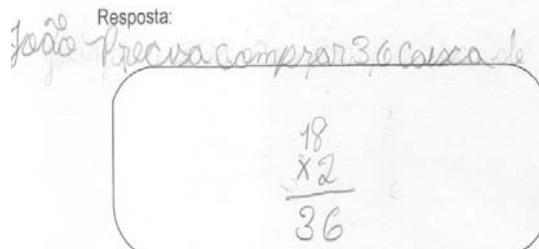 Resposta:
João Precisa comprar 36 caixa de
18
x2
36